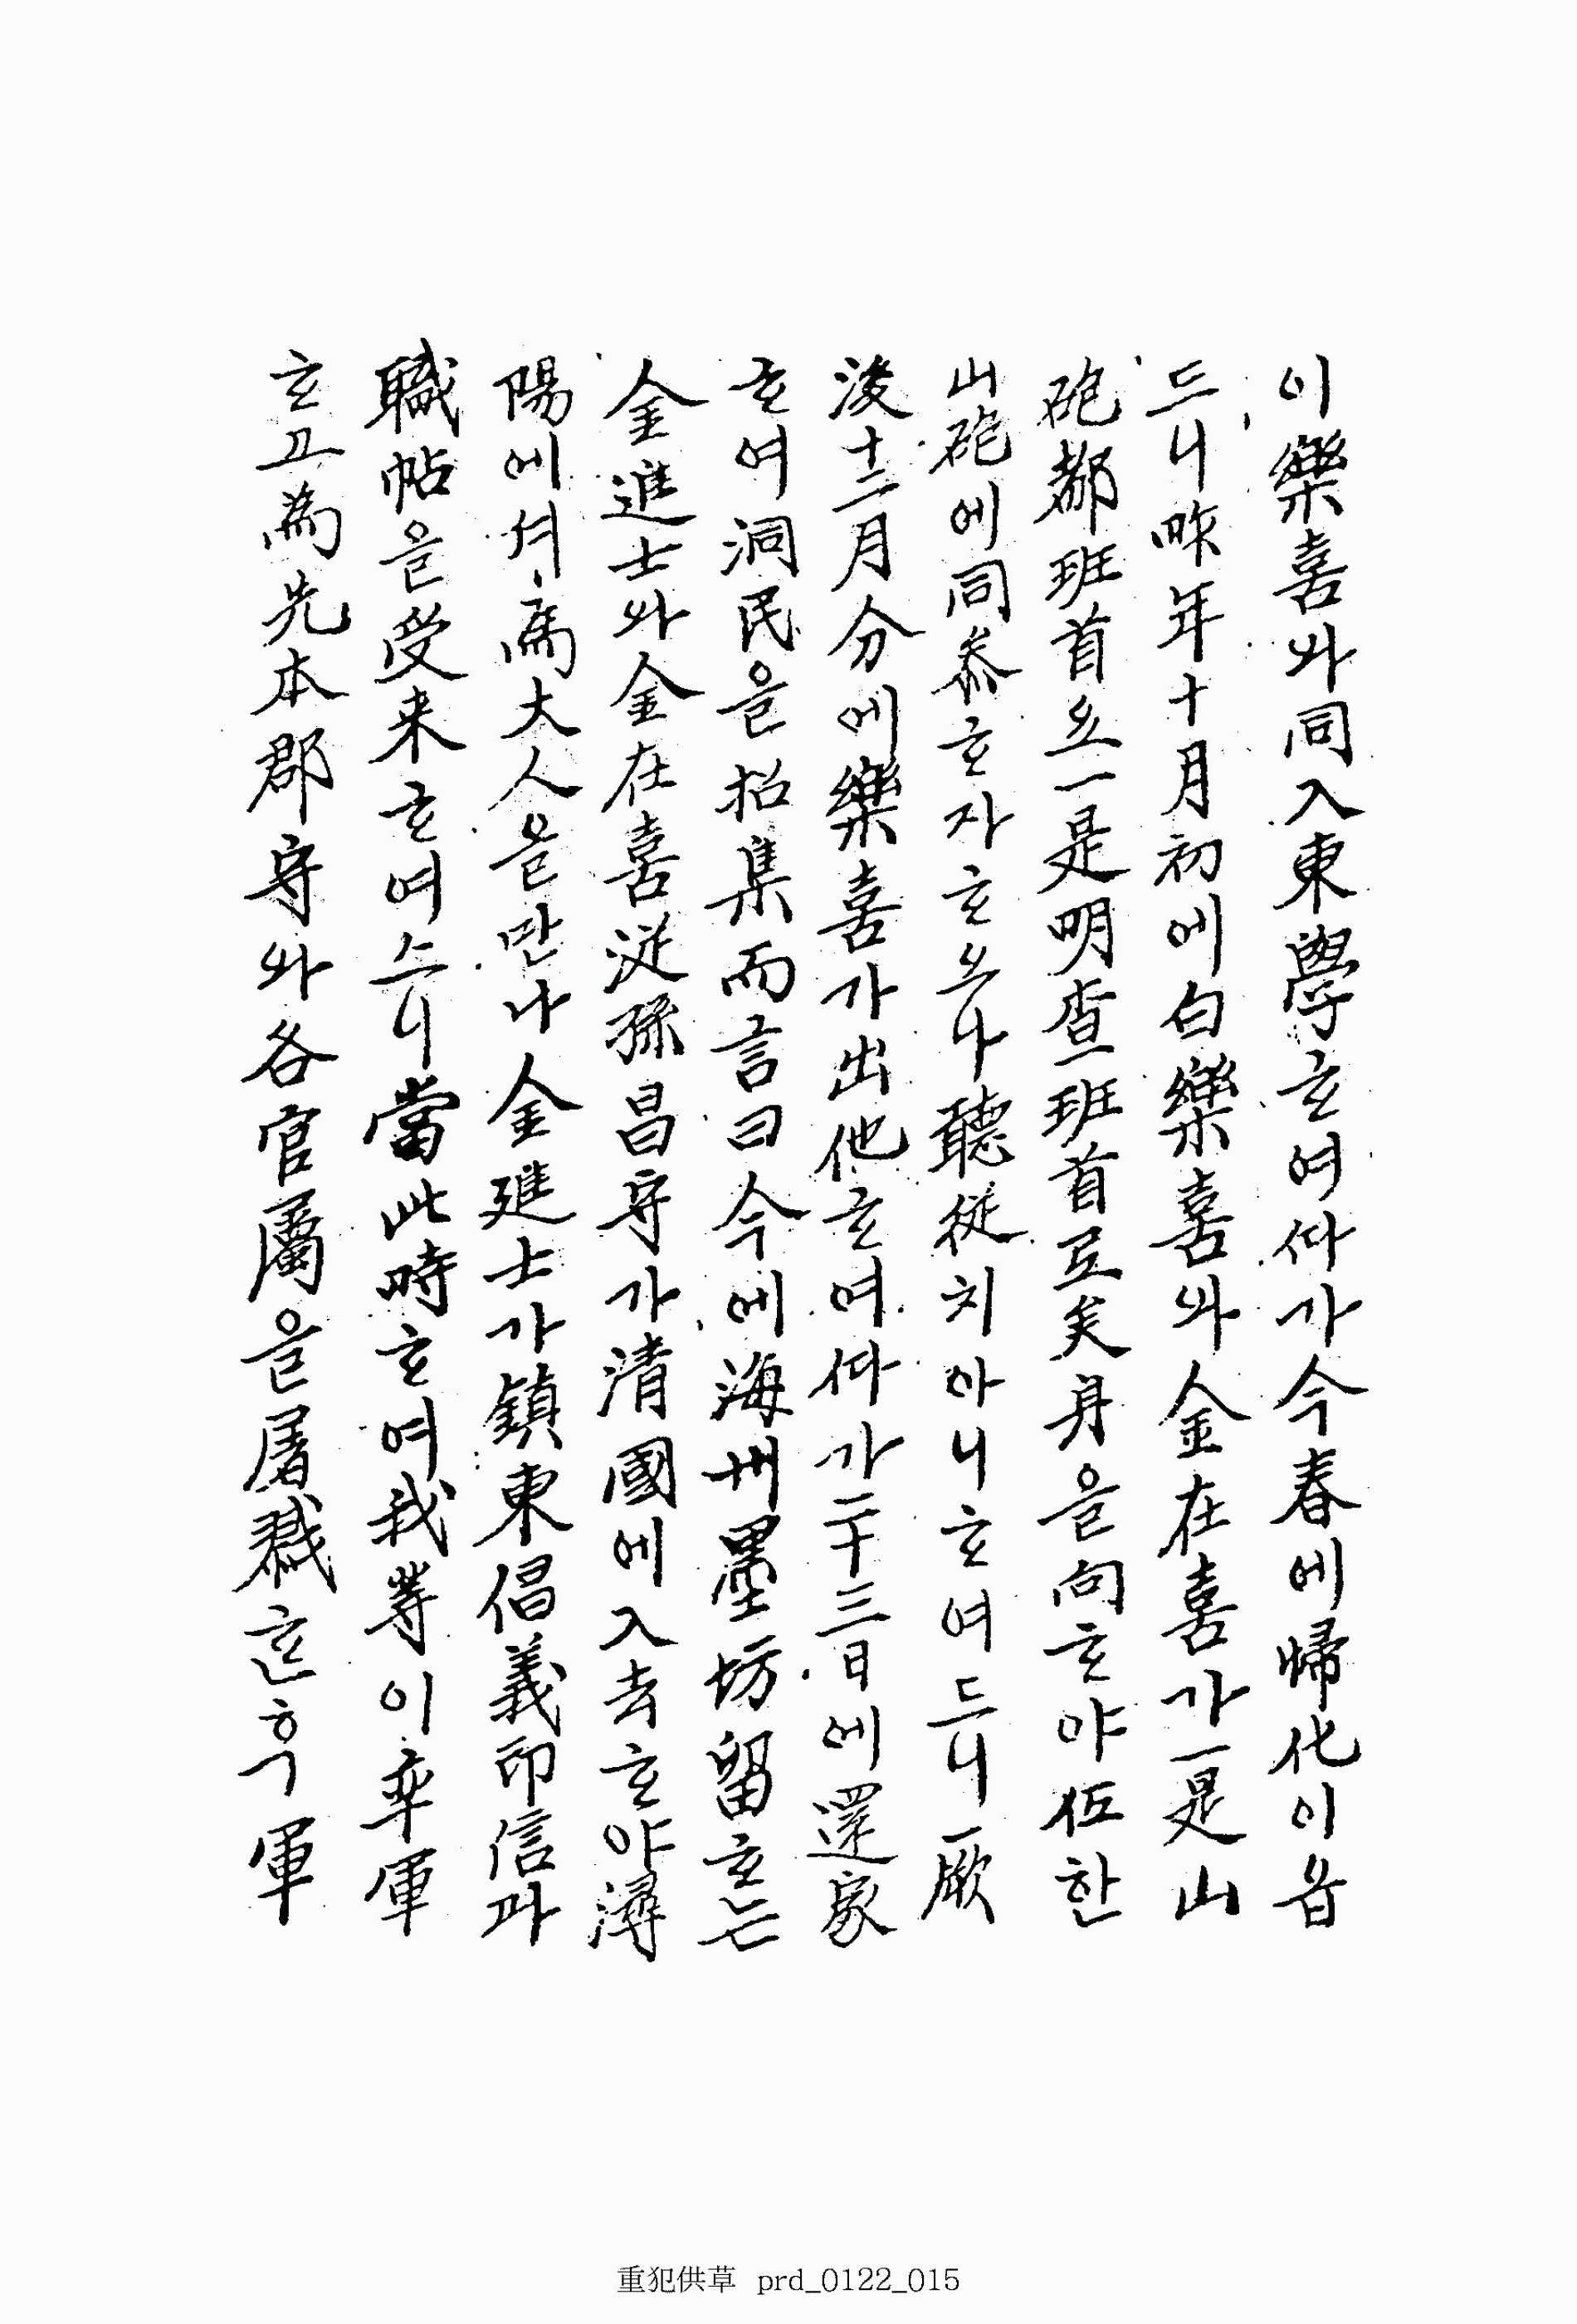 이樂喜와同入東學ᄒᆞ여ᄯᅡ가今春에歸化이옵
드니昨年十月初에白樂喜와金在喜가一是山
砲都班首요一是明查班首互矣身을向ᄒᆞ야伍한
山砲에同叅ᄒᆞ자ᄒᆞ오나聽從치아니ᄒᆞ여드니厥
後十二月分에樂喜가出他ᄒᆞ여ᄯᅡ가二十三日에還家
ᄒᆞ여洞民을招集而言曰今에海州墨坊留ᄒᆞ는
金進士와金在喜從孫昌守가清國에入去ᄒᆞ야潯
陽에셔馬大人을만나金進士가鎮東倡義印信과
職帖을受来ᄒᆞ여스니當此時ᄒᆞ여我等이率軍
ᄒᆞ고爲先本郡守와各官屬을屠戮ᄒᆞᆫ후軍
重犯供草 prd_0122_015